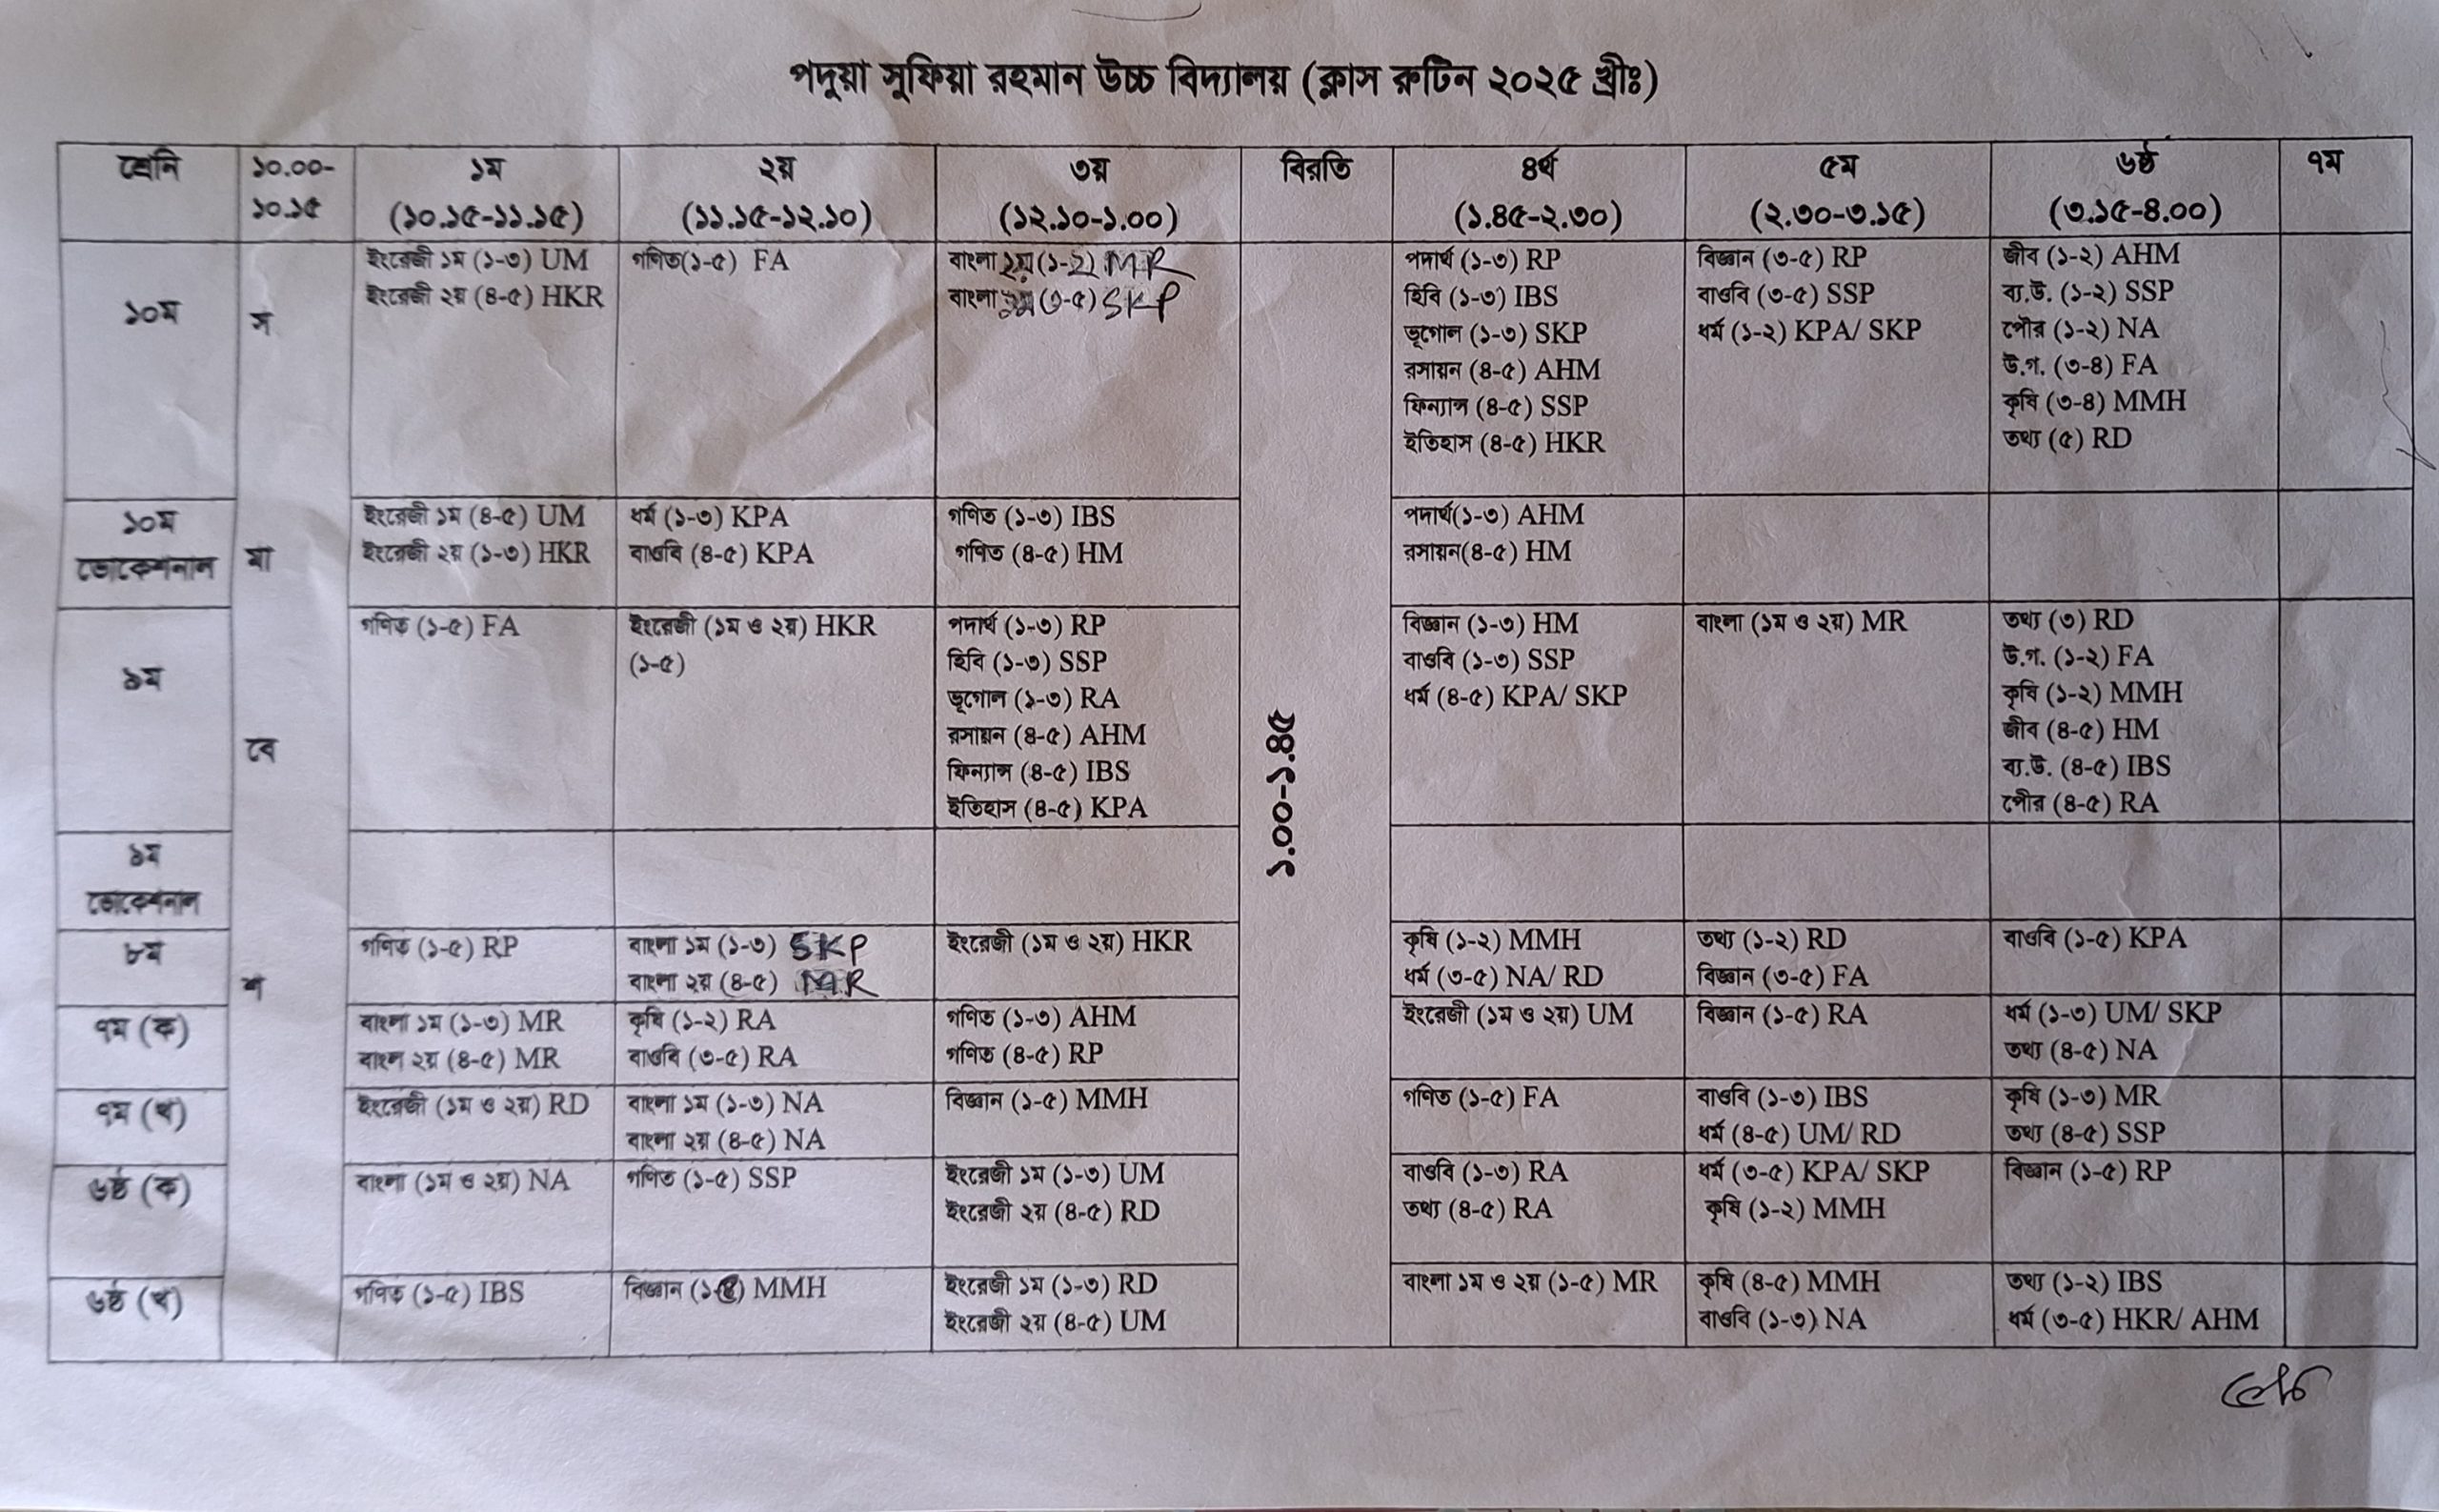 পদুয়া সুফিয়া রহমান উচ্চ বিদ্যালয় (ক্লাস রুটিন ২০২৫ খ্রীঃ)
শ্রেনি ১০.০০-১০.১৫ ১ম (১০.১৫-১১.১৫) ২য় (১১.১৫-১২.১০) ৩য় (১২.১০-১.০০) বিরতি ৪র্থ (১.৪৫-২.৩০) ৫ম (২.৩০-৩.১৫) ৬ষ্ঠ (৩.১৫-৪.০০) ৭ম
স
মা
বে
শ
১.০০-১.৪৫
১০ম
ইংরেজী ১ম (১-৩) UM
ইংরেজী ২য় (৪-৫) HKR
গণিত(১-৫) FA
বাংলা ২য় (১-২) MR
বাংলা ১ম (৩-৫) SKP
পদার্থ (১-৩) RP
হিবি (১-৩) IBS
ভূগোল (১-৩) SKP
রসায়ন (৪-৫) AHM
ফিন্যান্স (৪-৫) SSP
ইতিহাস (৪-৫) HKR
বিজ্ঞান (৩-৫) RP
বাওবি (৩-৫) SSP
ধর্ম (১-২) KPA/ SKP
জীব (১-২) AHM
ব্য.উ. (১-২) SSP
পৌর (১-২) NA
উ.গ. (৩-৪) FA
কৃষি (৩-৪) MMH
তথ্য (৫) RD
১০ম
ভোকেশনাল
ইংরেজী ১ম (৪-৫) UM
ইংরেজী ২য় (১-৩) HKR
ধর্ম (১-৩) KPA
বাওবি (৪-৫) KPA
গণিত (১-৩) IBS
গণিত (৪-৫) HM
পদার্থ(১-৩) AHM
রসায়ন(৪-৫) HM
৯ম
গণিত (১-৫) FA
ইংরেজী (১ম ও ২য়) HKR
(১-৫)
পদার্থ (১-৩) RP
হিবি (১-৩) SSP
ভূগোল (১-৩) RA
রসায়ন (৪-৫) AHM
ফিন্যান্স (৪-৫) IBS
ইতিহাস (৪-৫) KPA
বিজ্ঞান (১-৩) HM
বাওবি (১-৩) SSP
ধর্ম (৪-৫) KPA/ SKP
বাংলা (১ম ও ২য়) MR
তথ্য (৩) RD
উ.গ. (১-২) FA
কৃষি (১-২) MMH
জীব (৪-৫) HM
ব্য.উ. (৪-৫) IBS
পৌর (৪-৫) RA
৯ম
ভোকেশনাল
৮ম
গণিত (১-৫) RP
বাংলা ১ম (১-৩) SKP
বাংলা ২য় (৪-৫) MR
ইংরেজী (১ম ও ২য়) HKR
কৃষি (১-২) MMH
ধর্ম (৩-৫) NA/ RD
তথ্য (১-২) RD
বিজ্ঞান (৩-৫) FA
বাওবি (১-৫) KPA
৭ম (ক)
বাংলা ১ম (১-৩) MR
বাংল ২য় (৪-৫) MR
কৃষি (১-২) RA
বাওবি (৩-৫) RA
গণিত (১-৩) AHM
গণিত (৪-৫) RP
ইংরেজী (১ম ও ২য়) UM
বিজ্ঞান (১-৫) RA
ধর্ম (১-৩) UM/ SKP
তথ্য (৪-৫) NA
৭ম (খ)
ইংরেজী (১ম ও ২য়) RD
বাংলা ১ম (১-৩) NA
বাংলা ২য় (৪-৫) NA
বিজ্ঞান (১-৫) MMH
গণিত (১-৫) FA
বাওবি (১-৩) IBS
ধর্ম (৪-৫) UM/ RD
কৃষি (১-৩) MR
তথ্য (৪-৫) SSP
৬ষ্ঠ (ক)
বাংলা (১ম ও ২য়) NA
গণিত (১-৫) SSP
ইংরেজী ১ম (১-৩) UM
ইংরেজী ২য় (৪-৫) RD
বাওবি (১-৩) RA
তথ্য (৪-৫) RA
ধর্ম (৩-৫) KPA/ SKP
কৃষি (১-২) MMH
বিজ্ঞান (১-৫) RP
৬ষ্ঠ (খ)
গণিত (১-৫) IBS
বিজ্ঞান MMH
ইংরেজী ১ম (১-৩) RD
ইংরেজী ২য় (৪-৫) UM
বাংলা ১ম ও ২য় (১-৫) MR
কৃষি (৪-৫) MMH
বাওবি (১-৩) NA
তথ্য (১-২) IBS
ধর্ম (৩-৫) HKR/ AHM